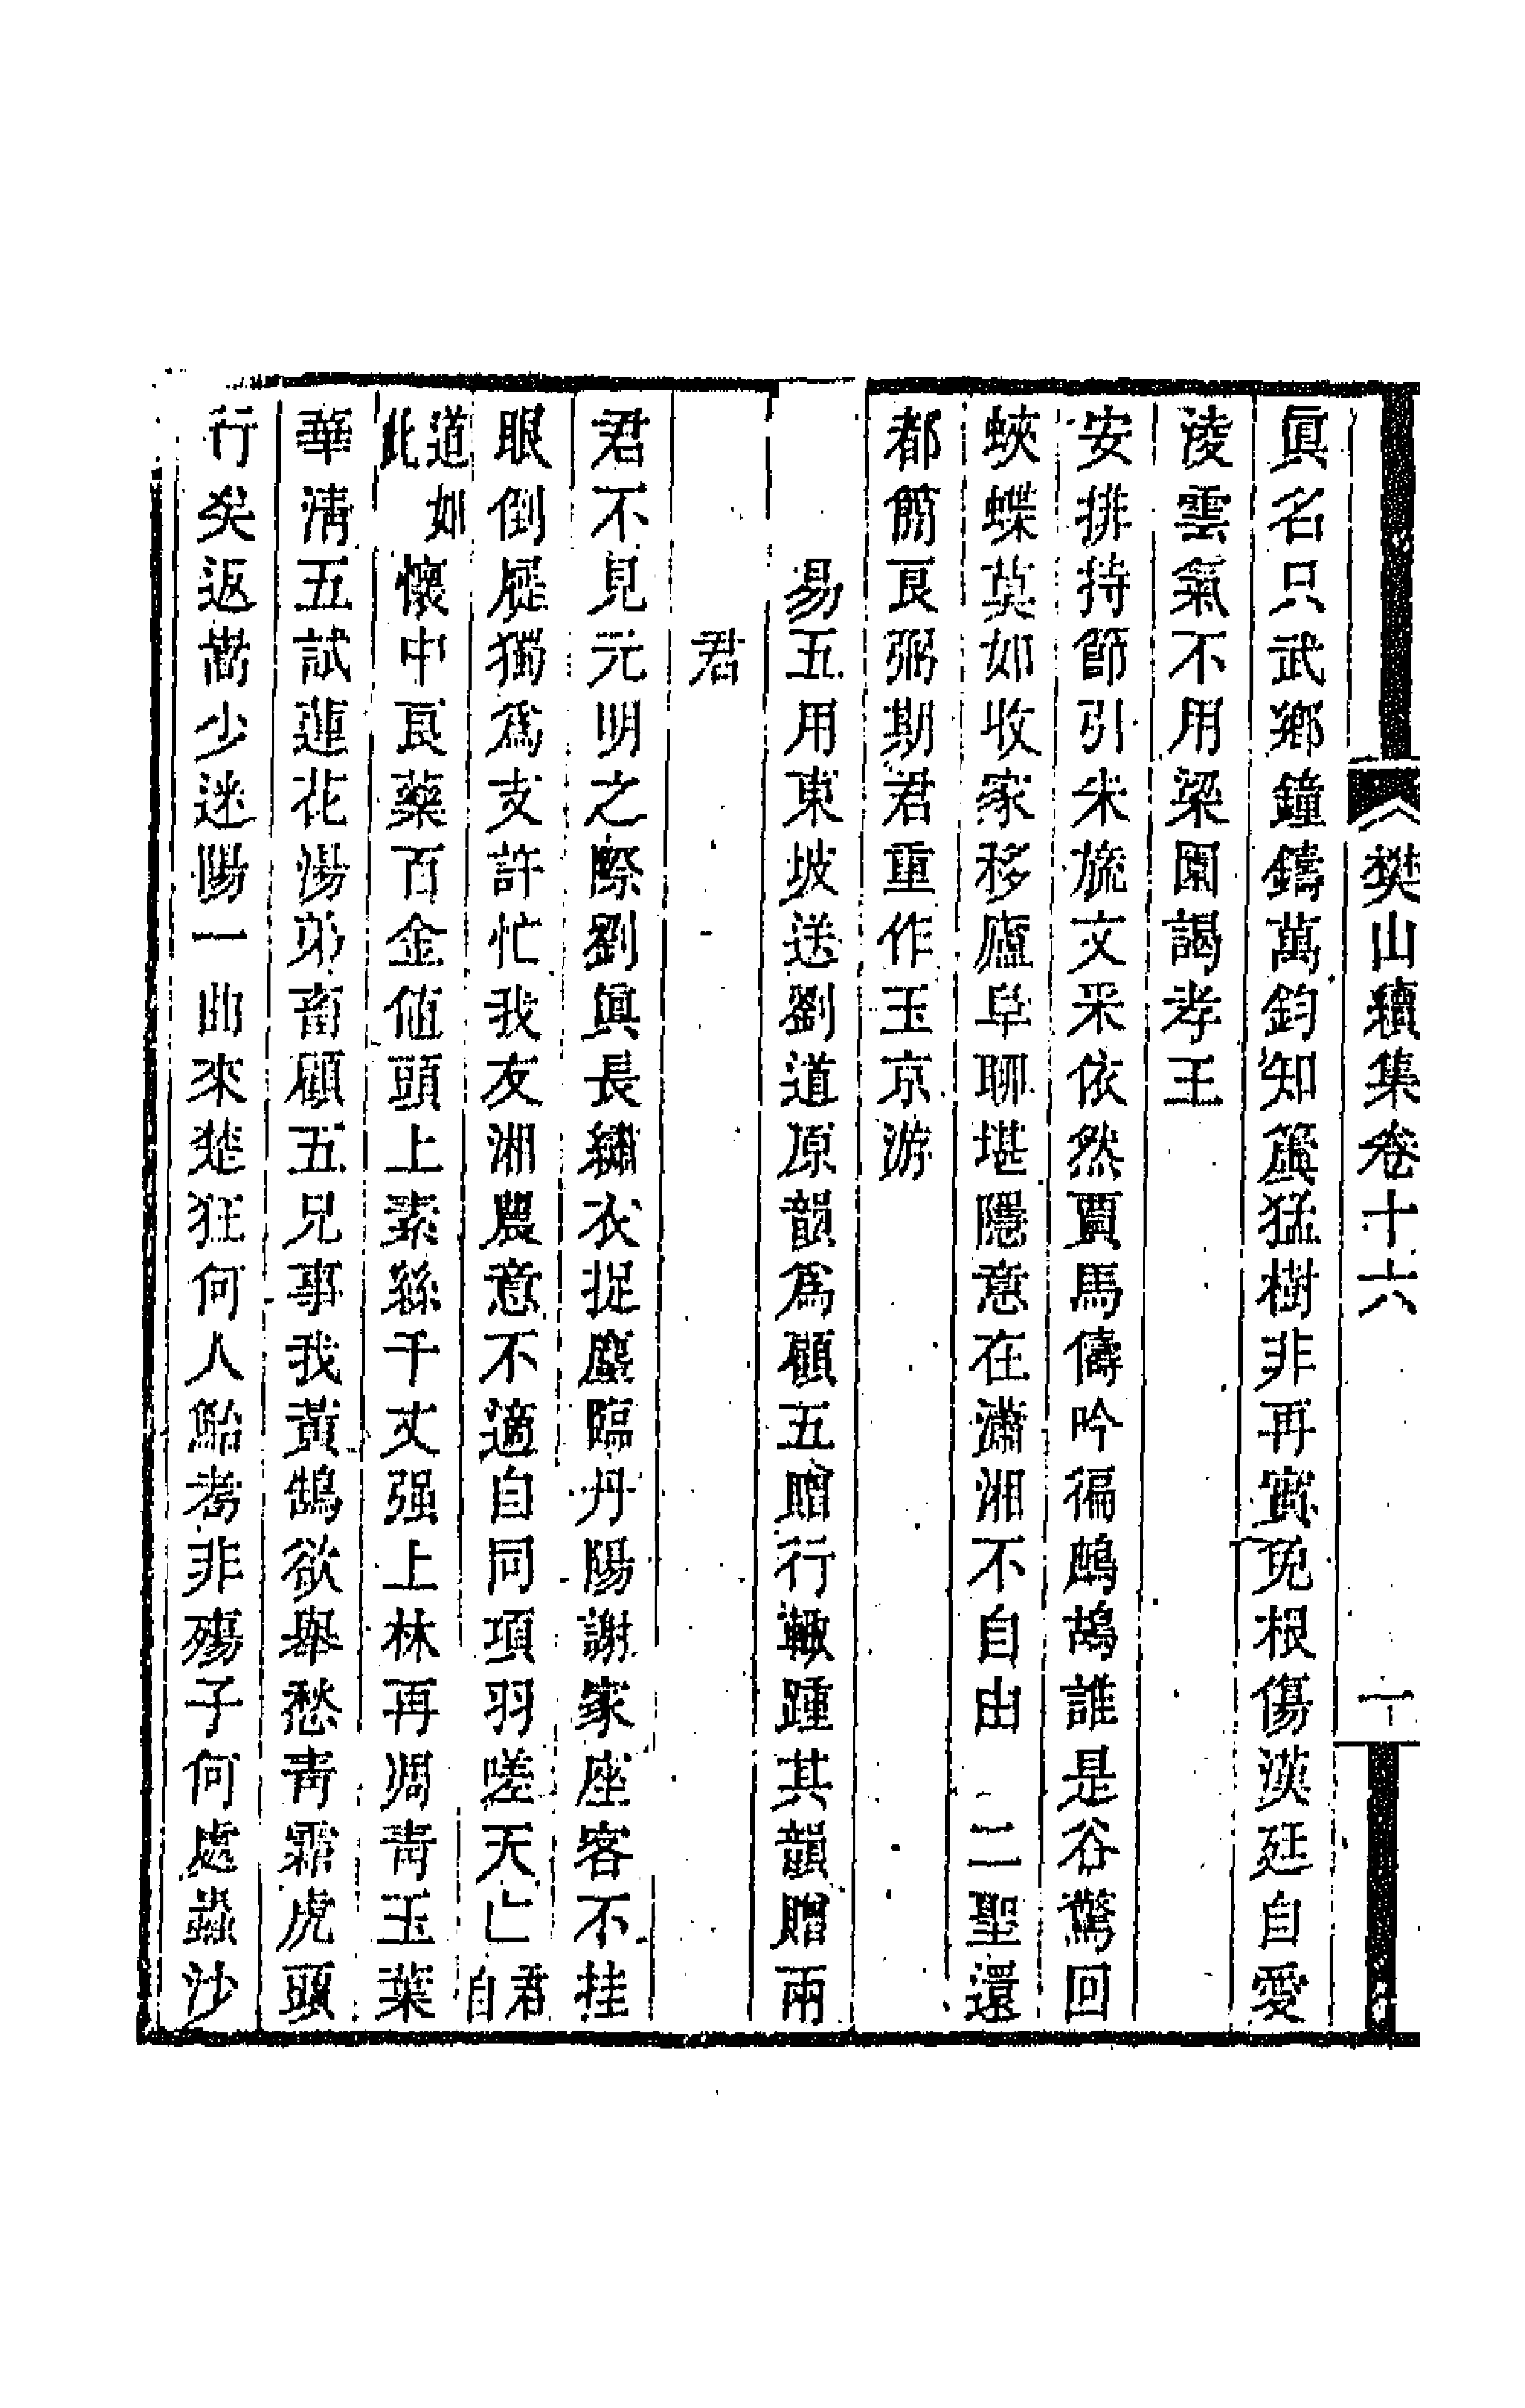 樊山續集卷十六
一
眞名只武鄉鐘鑄萬鈞知簴猛樹非再實免根傷漢廷自愛
淩雲氣不用梁園謁孝王
安排持節引朱旒文采依然賈馬儔吟徧鷓鴣誰是谷驚回
蛺蝶莫如收家移廬阜聊堪隱意在瀟湘不自由　二聖還
都簡良弼期君重作玉京游
易五用東坡送劉道原韻爲顧五贈行輒踵其韻贈兩
君
君不見元明之際劉眞長繡衣捉麈臨丹陽謝家座客不挂
眼倒屣獨爲支許忙我友湘農意不適自同項羽嗟天亡君自
道如此懷中良藥百金値頭上素絲千丈强上林再凋靑玉葉
華淸五試蓮花湯弟畜顧五兄事我黃鵠欲舉愁靑霜虎頭
行矣返嵩少迷陽一曲來楚狂何人鮐耇非殤子何處蟲沙